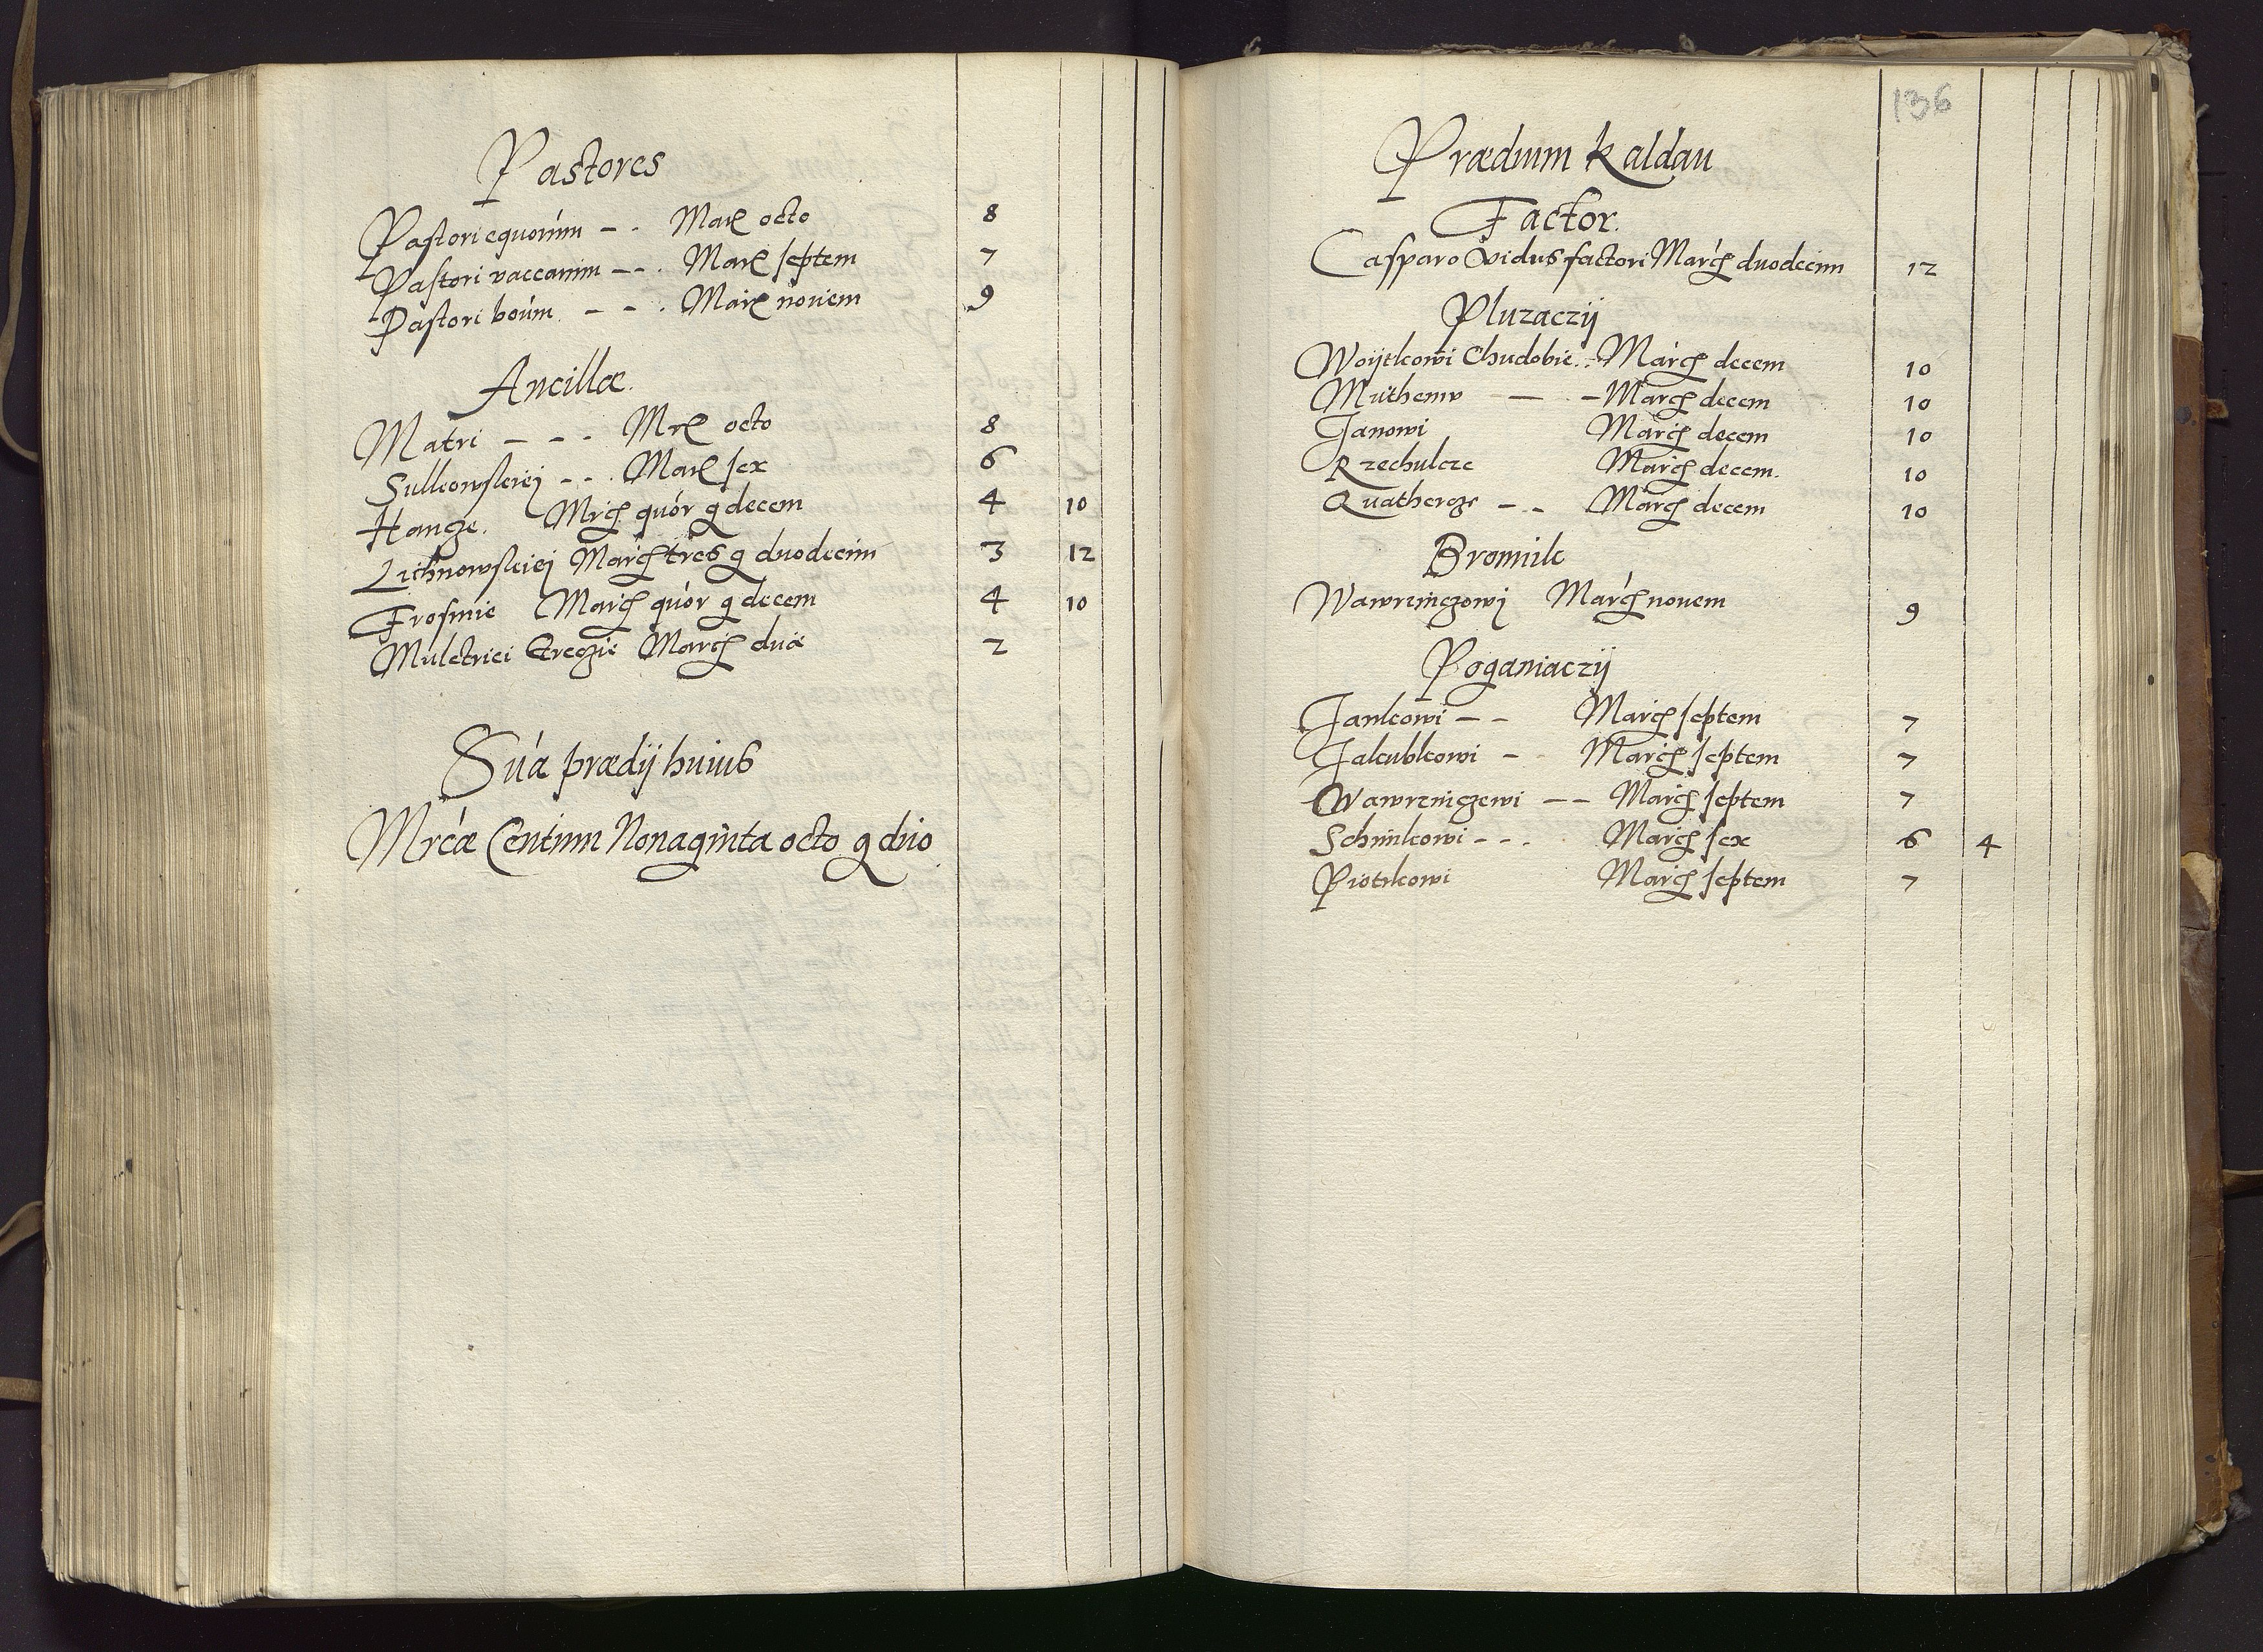 Pastores
Pastori equorum - - Marc octo 8
Pastori vaccarum - - . Marc septem 7
Pastori boúm - - . Marc nouem 9
Ancillæ.
Matri - - - Mrc octo 8
Sulkowskiej - - . Marc sex 6
Hancze. Mrcs quór g decem 4 10
Lichnowskiej Marcs tres g duodecim 3 12
Frosinie Marcs quór g decem 4 10
Muletrici Marcs duæ 2
Súá prædij huius
Mrcæ Centum Nonaginta octo g duo
136
Prædium Kaldau
Factor.
Casparo Vidus factori Marcs duodecim 12
Pluzaczij
Woijtkowi Chudobie . . Marcs decem 10
Muthemv - - Marcs decem 10
Janowi Marcs decem 10
Rzechulcze Marcs decem. 10
Quathercze - - Marcs decem 10
Bronnik
Wawrzinczowj Marcs nouem 9
Poganiaczij
Jankowi - - Marcs septem 7
Jakubkowi - Marcs septem 7
Wawrzinczewi - - Marcs septem 7
Schimkowi - - - Marcs sex 6 4
Piotrkowi Marcs septem 7